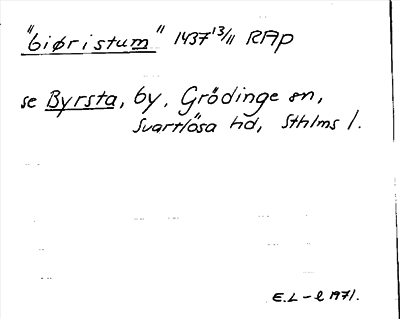 "biøristum" 1437 13/11 RAp
se Byrsta, by, Grödinge sn,
Svartlösa hd, Sthlms l.
E.L-l 1971.